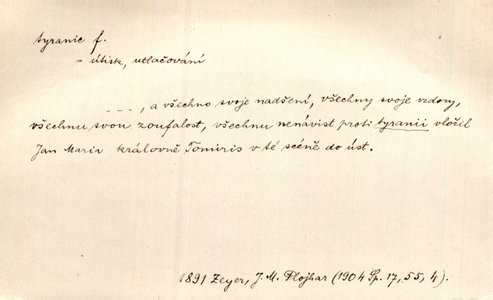 tyranie f.
= útisk, utlačování
---, a všechno svoje nadšení, všechny svoje vzdory,
všechnu svou zoufalost, všechnu nenávist proti tyranii vložil
Jan Maria královně Tomiris v té scéně do úst.
1891 Zeyer, J. M. Plojhar (1904 Sp. 17, 55, 4).